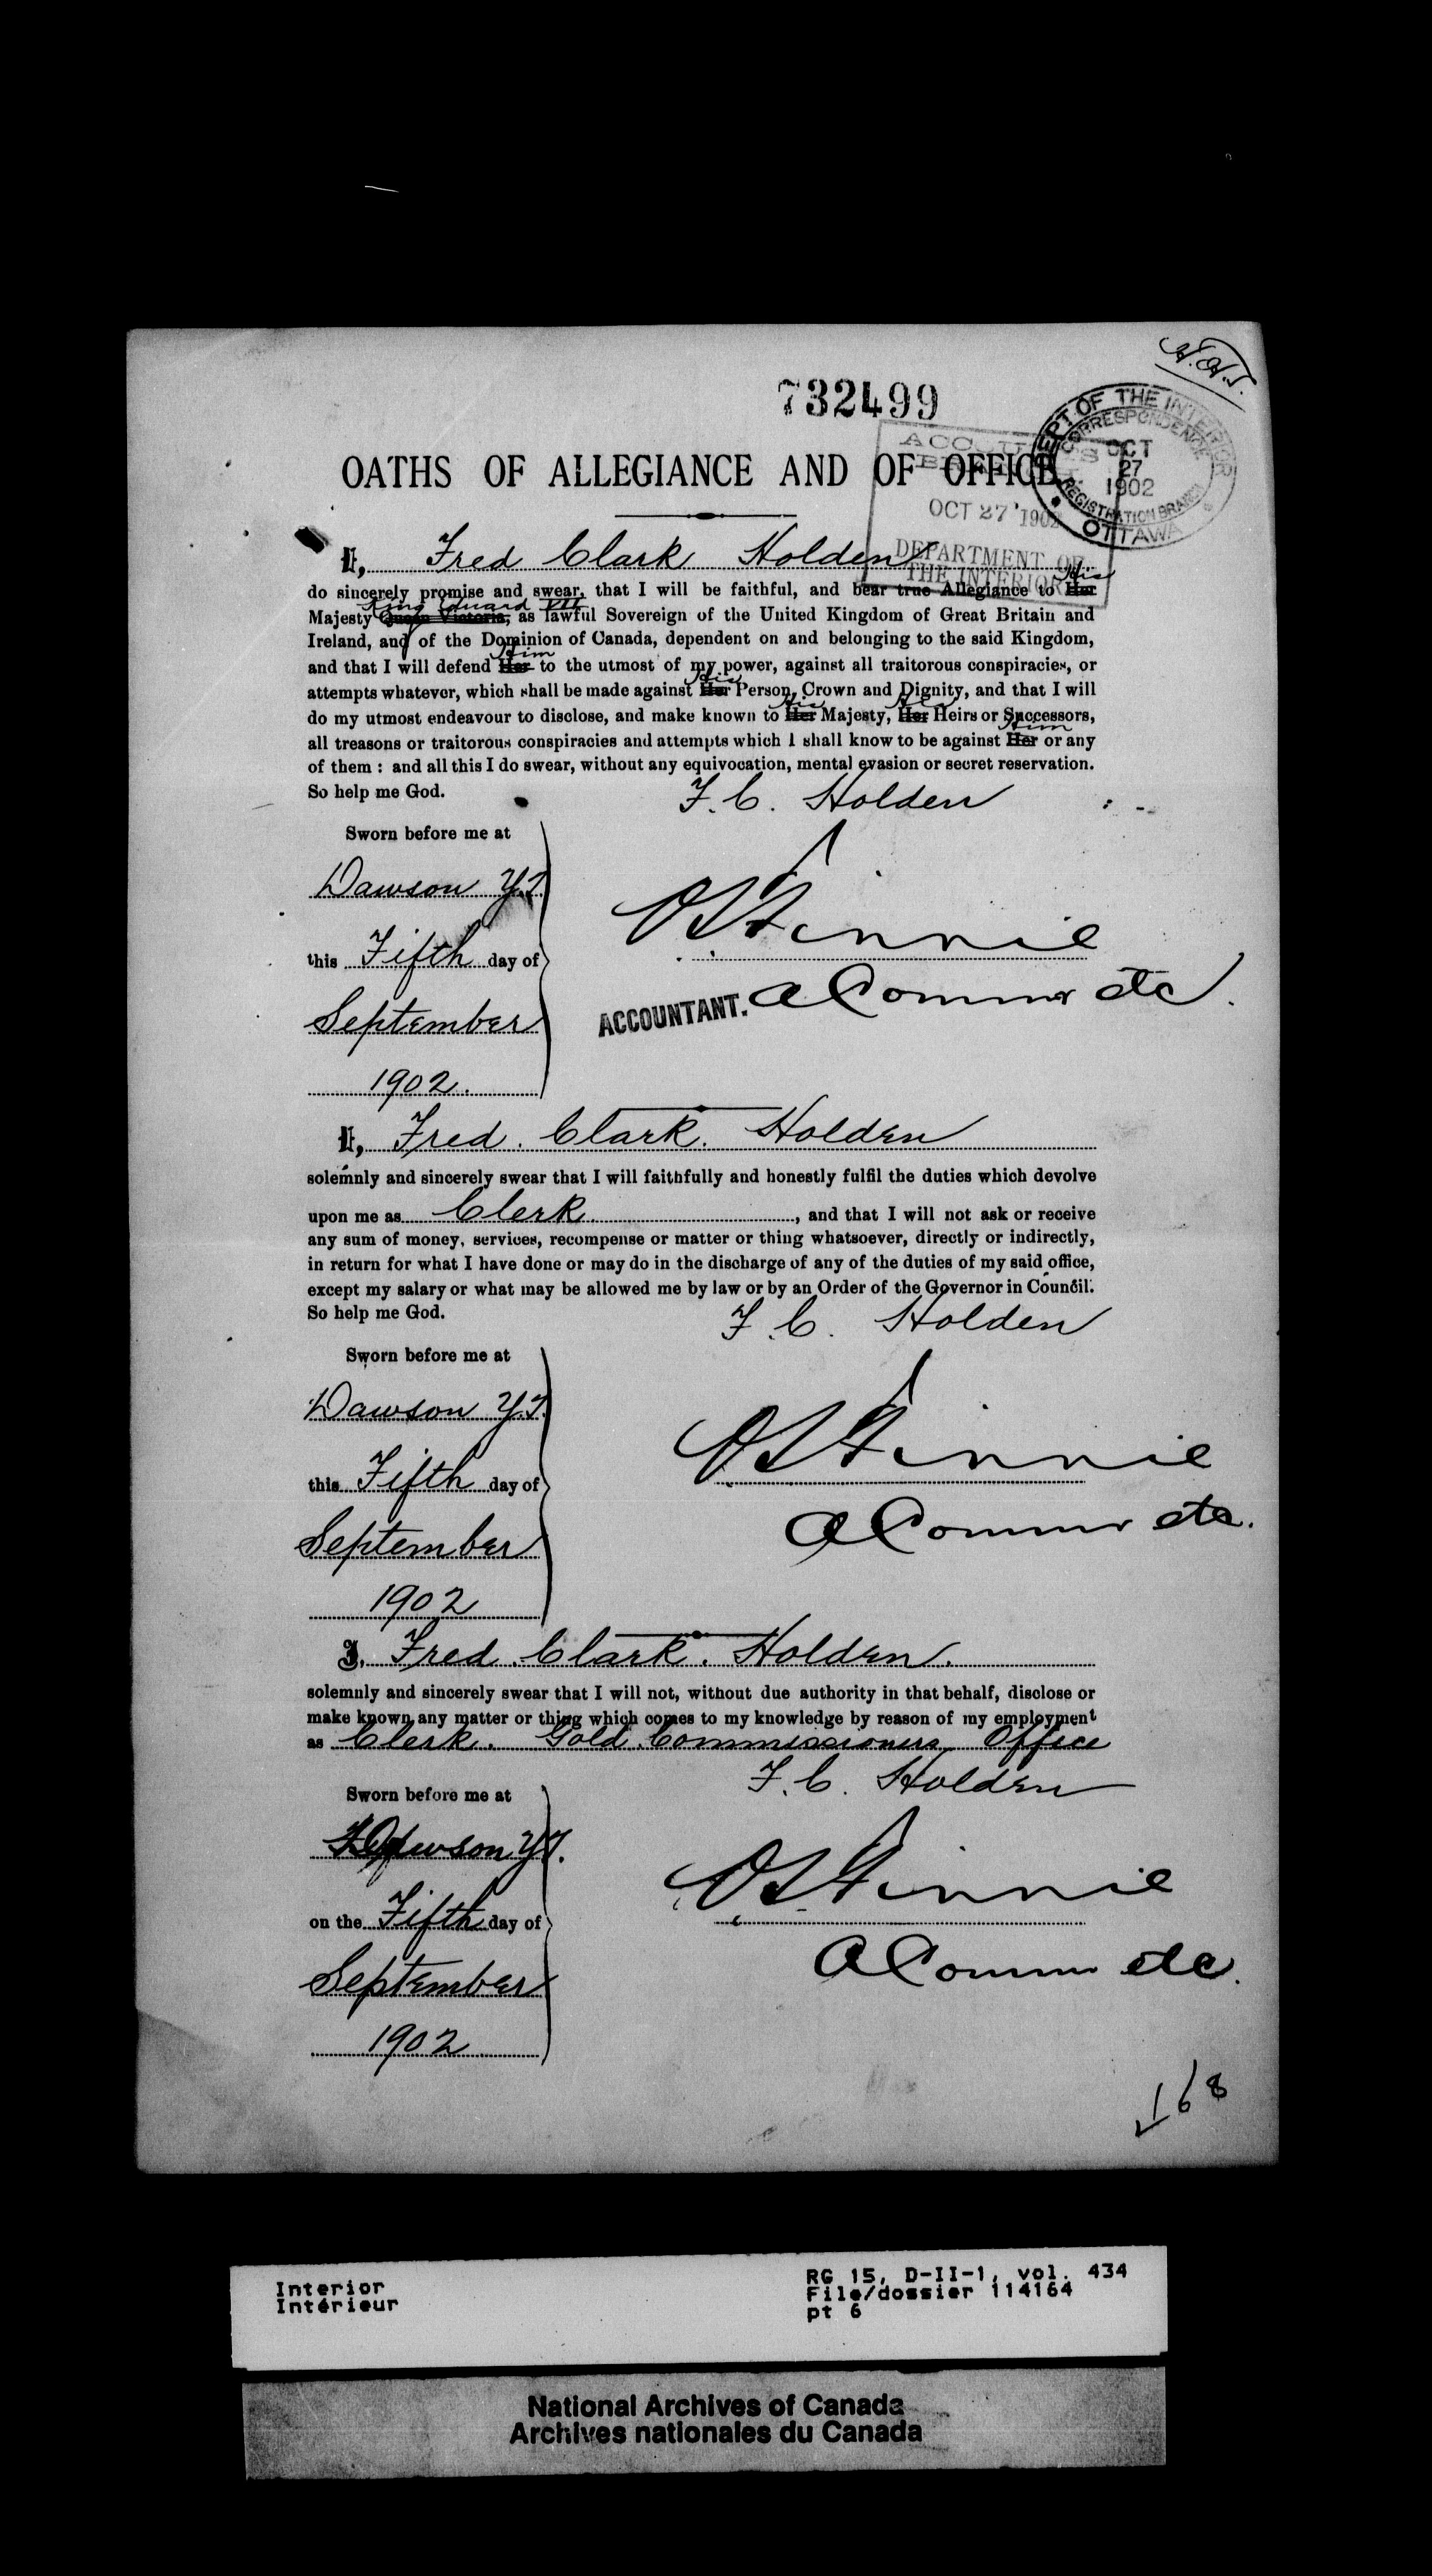 H.H.S.
732499
DEPT OF THE INTERIOR
CORRESPONDENCE
OCT
27
1902
REGISTRATION BRANCH
OTTAWA
OATHS OF ALLEGIANCE AND OF OFFICE.
OCT 27 1902
DEPARTMENT OF
THE INTERIOR
I, Fred Clark Holden
His
do sincerely promise and swear, that I will be faithful, and bear true Allegiance to Her
King Edward VII
Majesty Queen Victoria, as lawful Sovereign of the United Kingdom of Great Britain and
Ireland, and of the Dominion of Canada, dependent on and belonging to the said Kingdom,
Him
and that I will defend Her to the utmost of my power, against all traitorous conspiracies, or
His
attempts whatever, which shall be made against Her Person, Crown and Dignity, and that I will
His His
do my utmost endeavour to disclose, and make known to Her Majesty, Her Heirs or Successors,
Him
all treasons or traitorous conspiracies and attempts which I shall know to be against Her or any
of them : and all this I do swear, without any equivocation, mental evasion or secret reservation.
So help me God.
F. C. Holden
Sworn before me at
Dawson Y.T.
this Fifth day of
September
1902.
O S Finnie
ACCOUNTANT. A Commr etc.
I, Fred. Clark. Holden
solemnly and sincerely swear that I will faithfully and honestly fulfil the duties which devolve
upon me as Clerk , and that I will not ask or receive
any sum of money, services, recompense or matter or thing whatsoever, directly or indirectly,
in return for what I have done or may do in the discharge of any of the duties of my said office,
except my salary or what may be allowed me by law or by an Order of the Governor in Council.
So help me God.
F. C. Holden
Sworn before me at
Dawson Y.T.
this Fifth day of
September
1902
O S Finnie
A Commr etc.
I, Fred. Clark. Holden.
solemnly and sincerely swear that I will not, without due authority in that behalf, disclose or
make known any matter or thing which comes to my knowledge by reason of my employment
as Clerk. Gold Commissioners Office
F. C. Holden
Sworn before me at
Dawson Y.T.
on the Fifth day of
September
1902
O S Finnie
A Commr etc.
168
Interior
Intérieur
RG 15, D-II-1, vol. 434
File/dossier 114164
pt 6
National Archives of Canada
Archives nationales du Canada